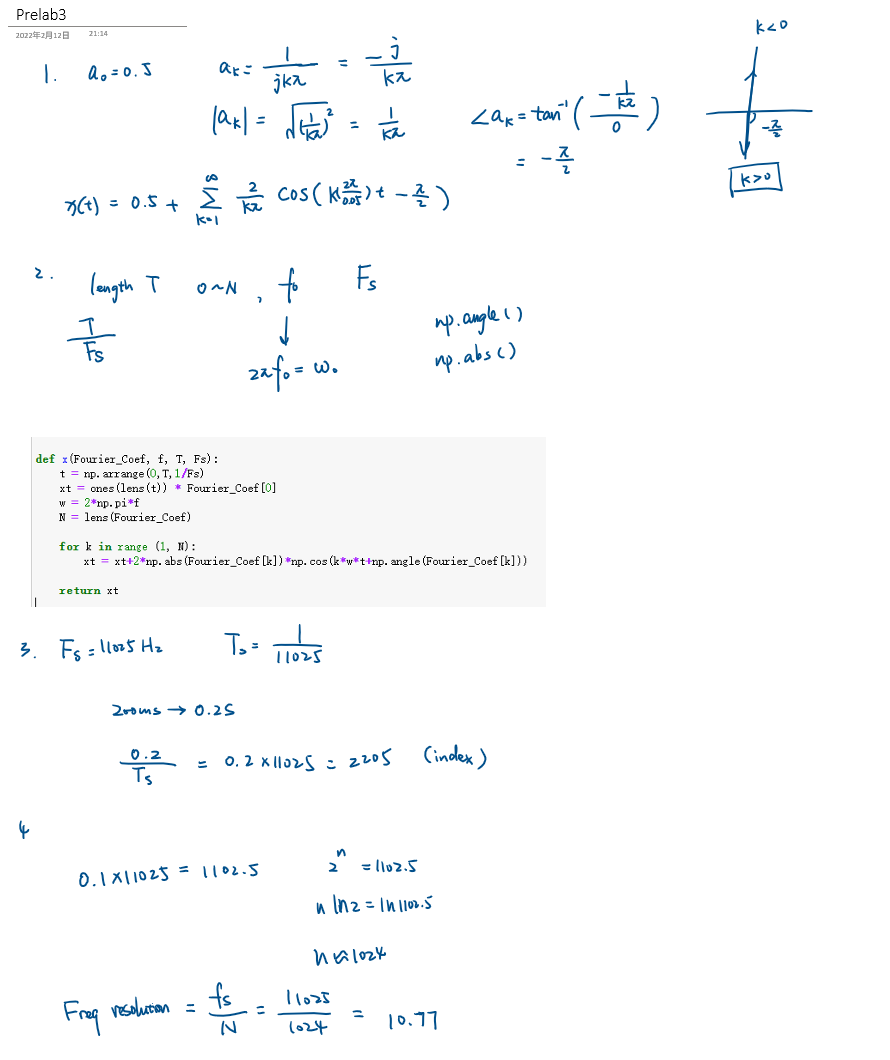 Prelab3
2022年2月12日 21:14
1. a₀ = 0.5 aₖ = 1/(jkπ) = -j/(kπ)
k<0
|aₖ| = √(1/(kπ))² = 1/(kπ) ∠aₖ = tan⁻¹( (-1/(kπ))/0 )
= -π/2
-π/2
k>0
x(t) = 0.5 + Σ_{k=1}^{∞} 2/(kπ) cos(k 2π/0.05)t - π/2)
2. length T 0~N, f₀ Fs
T/Fs ↓ np.angle()
2πf₀ = ω₀ np.abs()
def x(Fourier_Coef, f, T, Fs):
    t = np.arrange(0,T,1/Fs)
    xt = ones(lens(t)) * Fourier_Coef[0]
    w = 2*np.pi*f
    N = lens(Fourier_Coef)
    for k in range (1, N):
        xt = xt+2*np.abs(Fourier_Coef[k])*np.cos(k*w*t+np.angle(Fourier_Coef[k]))
    return xt
3. Fs = 11025 Hz Ts = 1/11025
200ms → 0.2S
0.2/Ts = 0.2 × 11025 = 2205 (index)
4
0.1×11025 = 1102.5 2ⁿ = 1102.5
n ln2 = ln1102.5
n ≈ 1024
Freq resolution = fs/N = 11025/1024 = 10.77